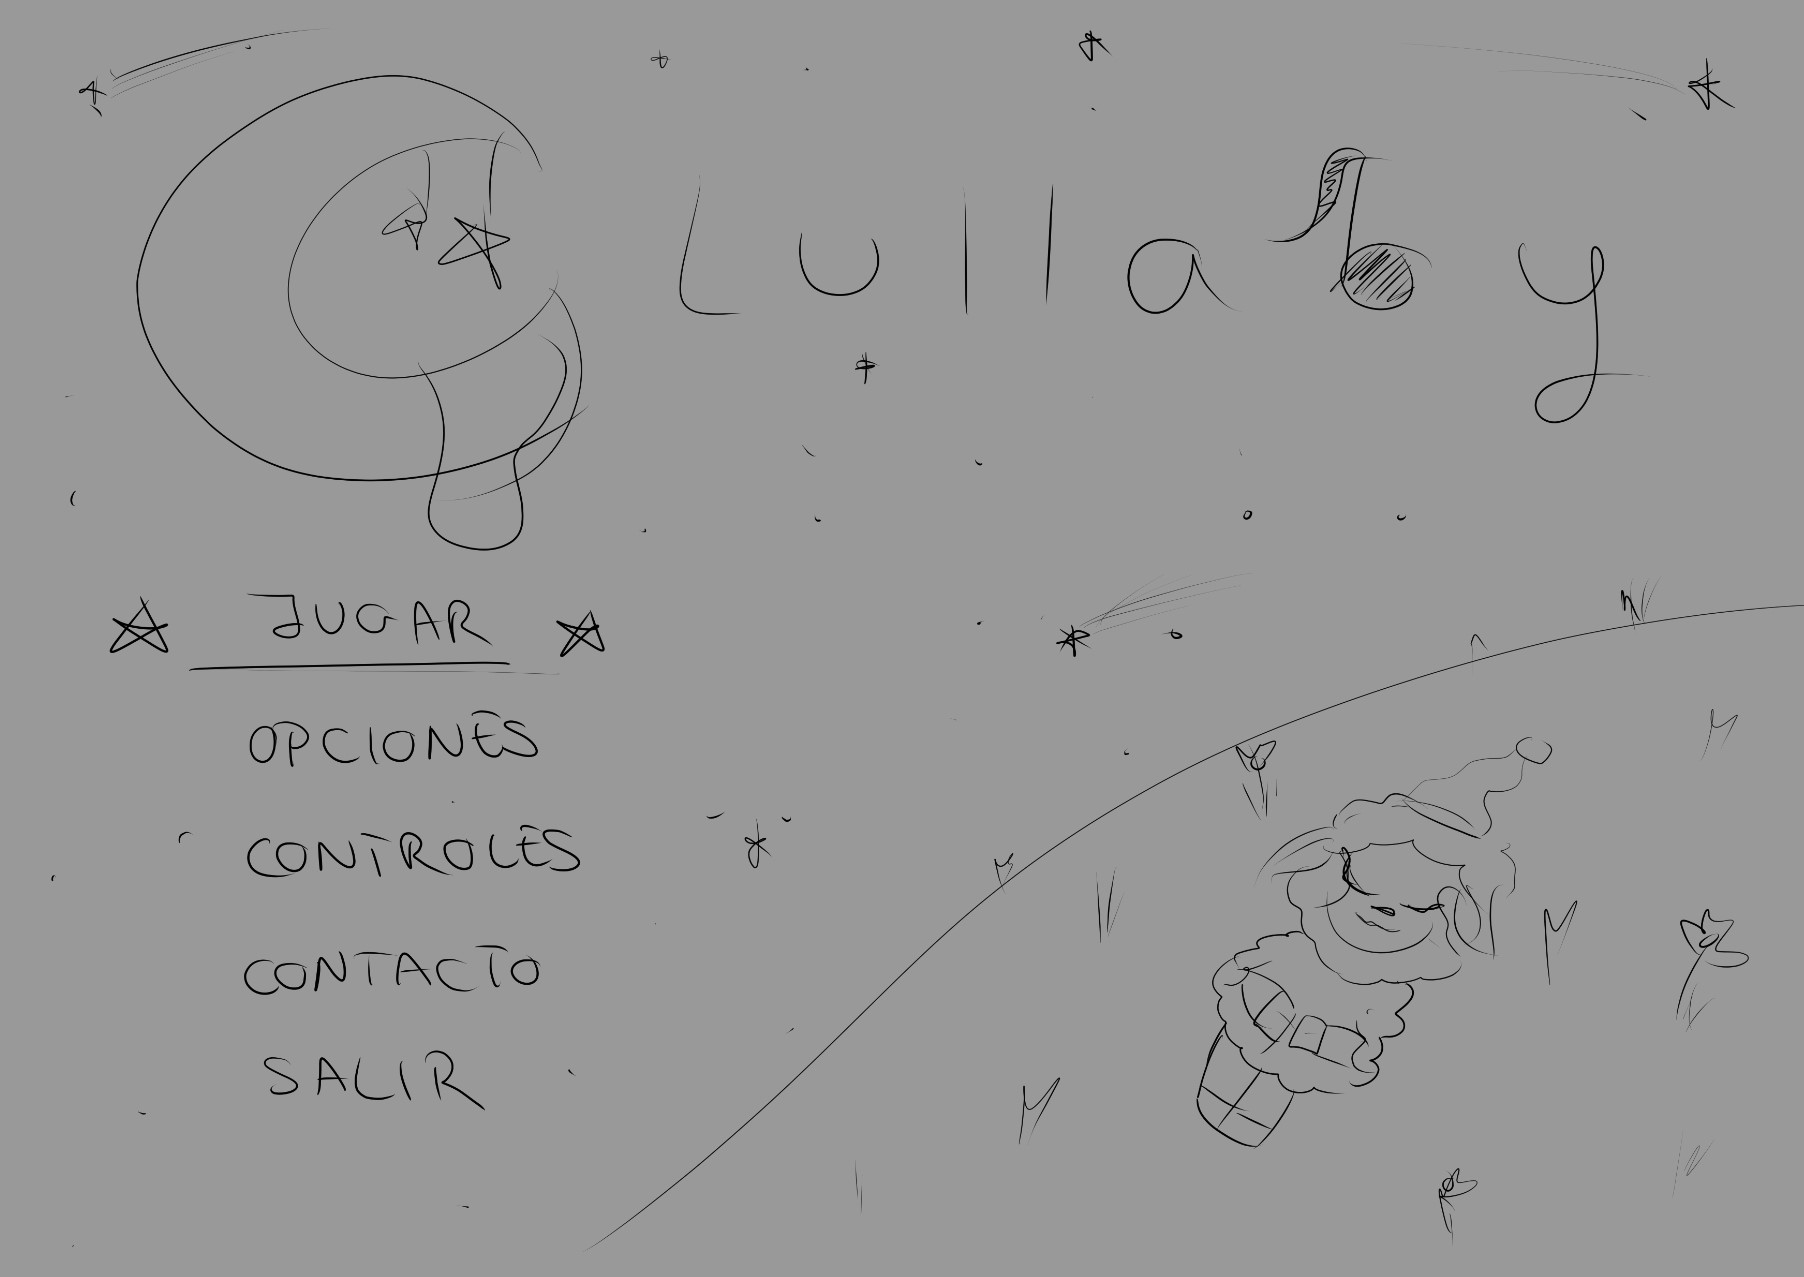 Lullaby
JUGAR
OPCIONES
CONTROLES
CONTACTO
SALIR